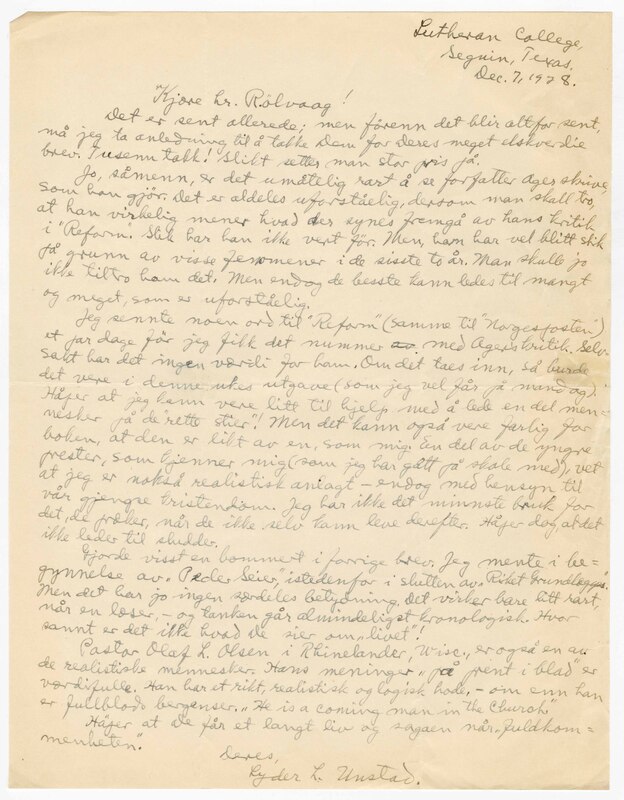 Lutheran College,
Seguin, Texas,
Dec. 7, 1928.
Kjære hr. Rölvaag!
Det er sent allerede; men förenn det blir alt for sent,
må jeg ta anledning til å takke Dem for Deres meget elskverdie
brev. Tusenn takk! Slikt setter man stor pris på.
Jo, såmenn, er det umåtelig rart å se forfatter Ager skrive,
som han gjör. Det er aldeles uforståelig, dersom man skal tro,
at han virkelig mener hvad der synes fremgå av hans kritik
i "Reform". Slik har han ikke vert för. Men, han har vel blitt slik
på grunn av visse fenomener i de sisste to år. Man skulle jo
ikke tiltro ham det. Men endog de besste kann ledes til mangt
og meget, som er uforståelig.
Jeg sennte noen ord til "Reform" (samme til "Norgesposten")
et par dage för jeg fikk det nummer med Agers kritik. Selv-
sakt har det ingen værdi for ham. Om det taes inn, så burde
det vere i denne ukes utgave (som jeg vel får på mandag).
Håper at jeg kann vere litt til hjelp med å lede en del men-
nesker på de "rette stier"! Men det kann også vere farlig for
boken, at den er likt av en, som mig. En del av de yngre
prester, som kjenner mig (som jeg har gått på skole med), vet
at jeg er nokså realistisk anlagt – endog med hensyn til
vår gjengse kristendom. Jeg har ikke det minnste bruk for
det, de preker, når de ikke selv kann leve derefter. Håper dog, at det
ikke leder til sludder.
Gjorde visst en bommert i forrige brev. Jeg mente i be-
gynnelse av "Peder Seier," istedenfor i slutten av "Riket Grundlegges".
Men det har jo ingen særdeles betydning, det virker bare litt rart,
når en læser, – og tanken går almindeligst kronologisk. Hvor
sannt er det ikke hvad De sier om "livet"!
Pastor Olaf L. Olsen i Rhinelander, Wisc., er også en av
de realistiske mennesker. Hans meninger "på prent i blad" er
værdifulle. Han har et rikt, realistisk og logisk hode, – om enn han
er fullblods bergenser. "He is a coming man in the Church."
Håper at De får et langt liv og sagaen når "fuldkom-
menheten".
Deres,
Lyder L. Unstad.